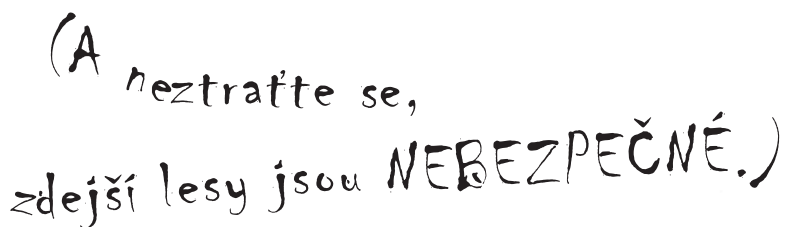 (A neztraťte se,
zdejší lesy jsou NEBEZPEČNÉ.)